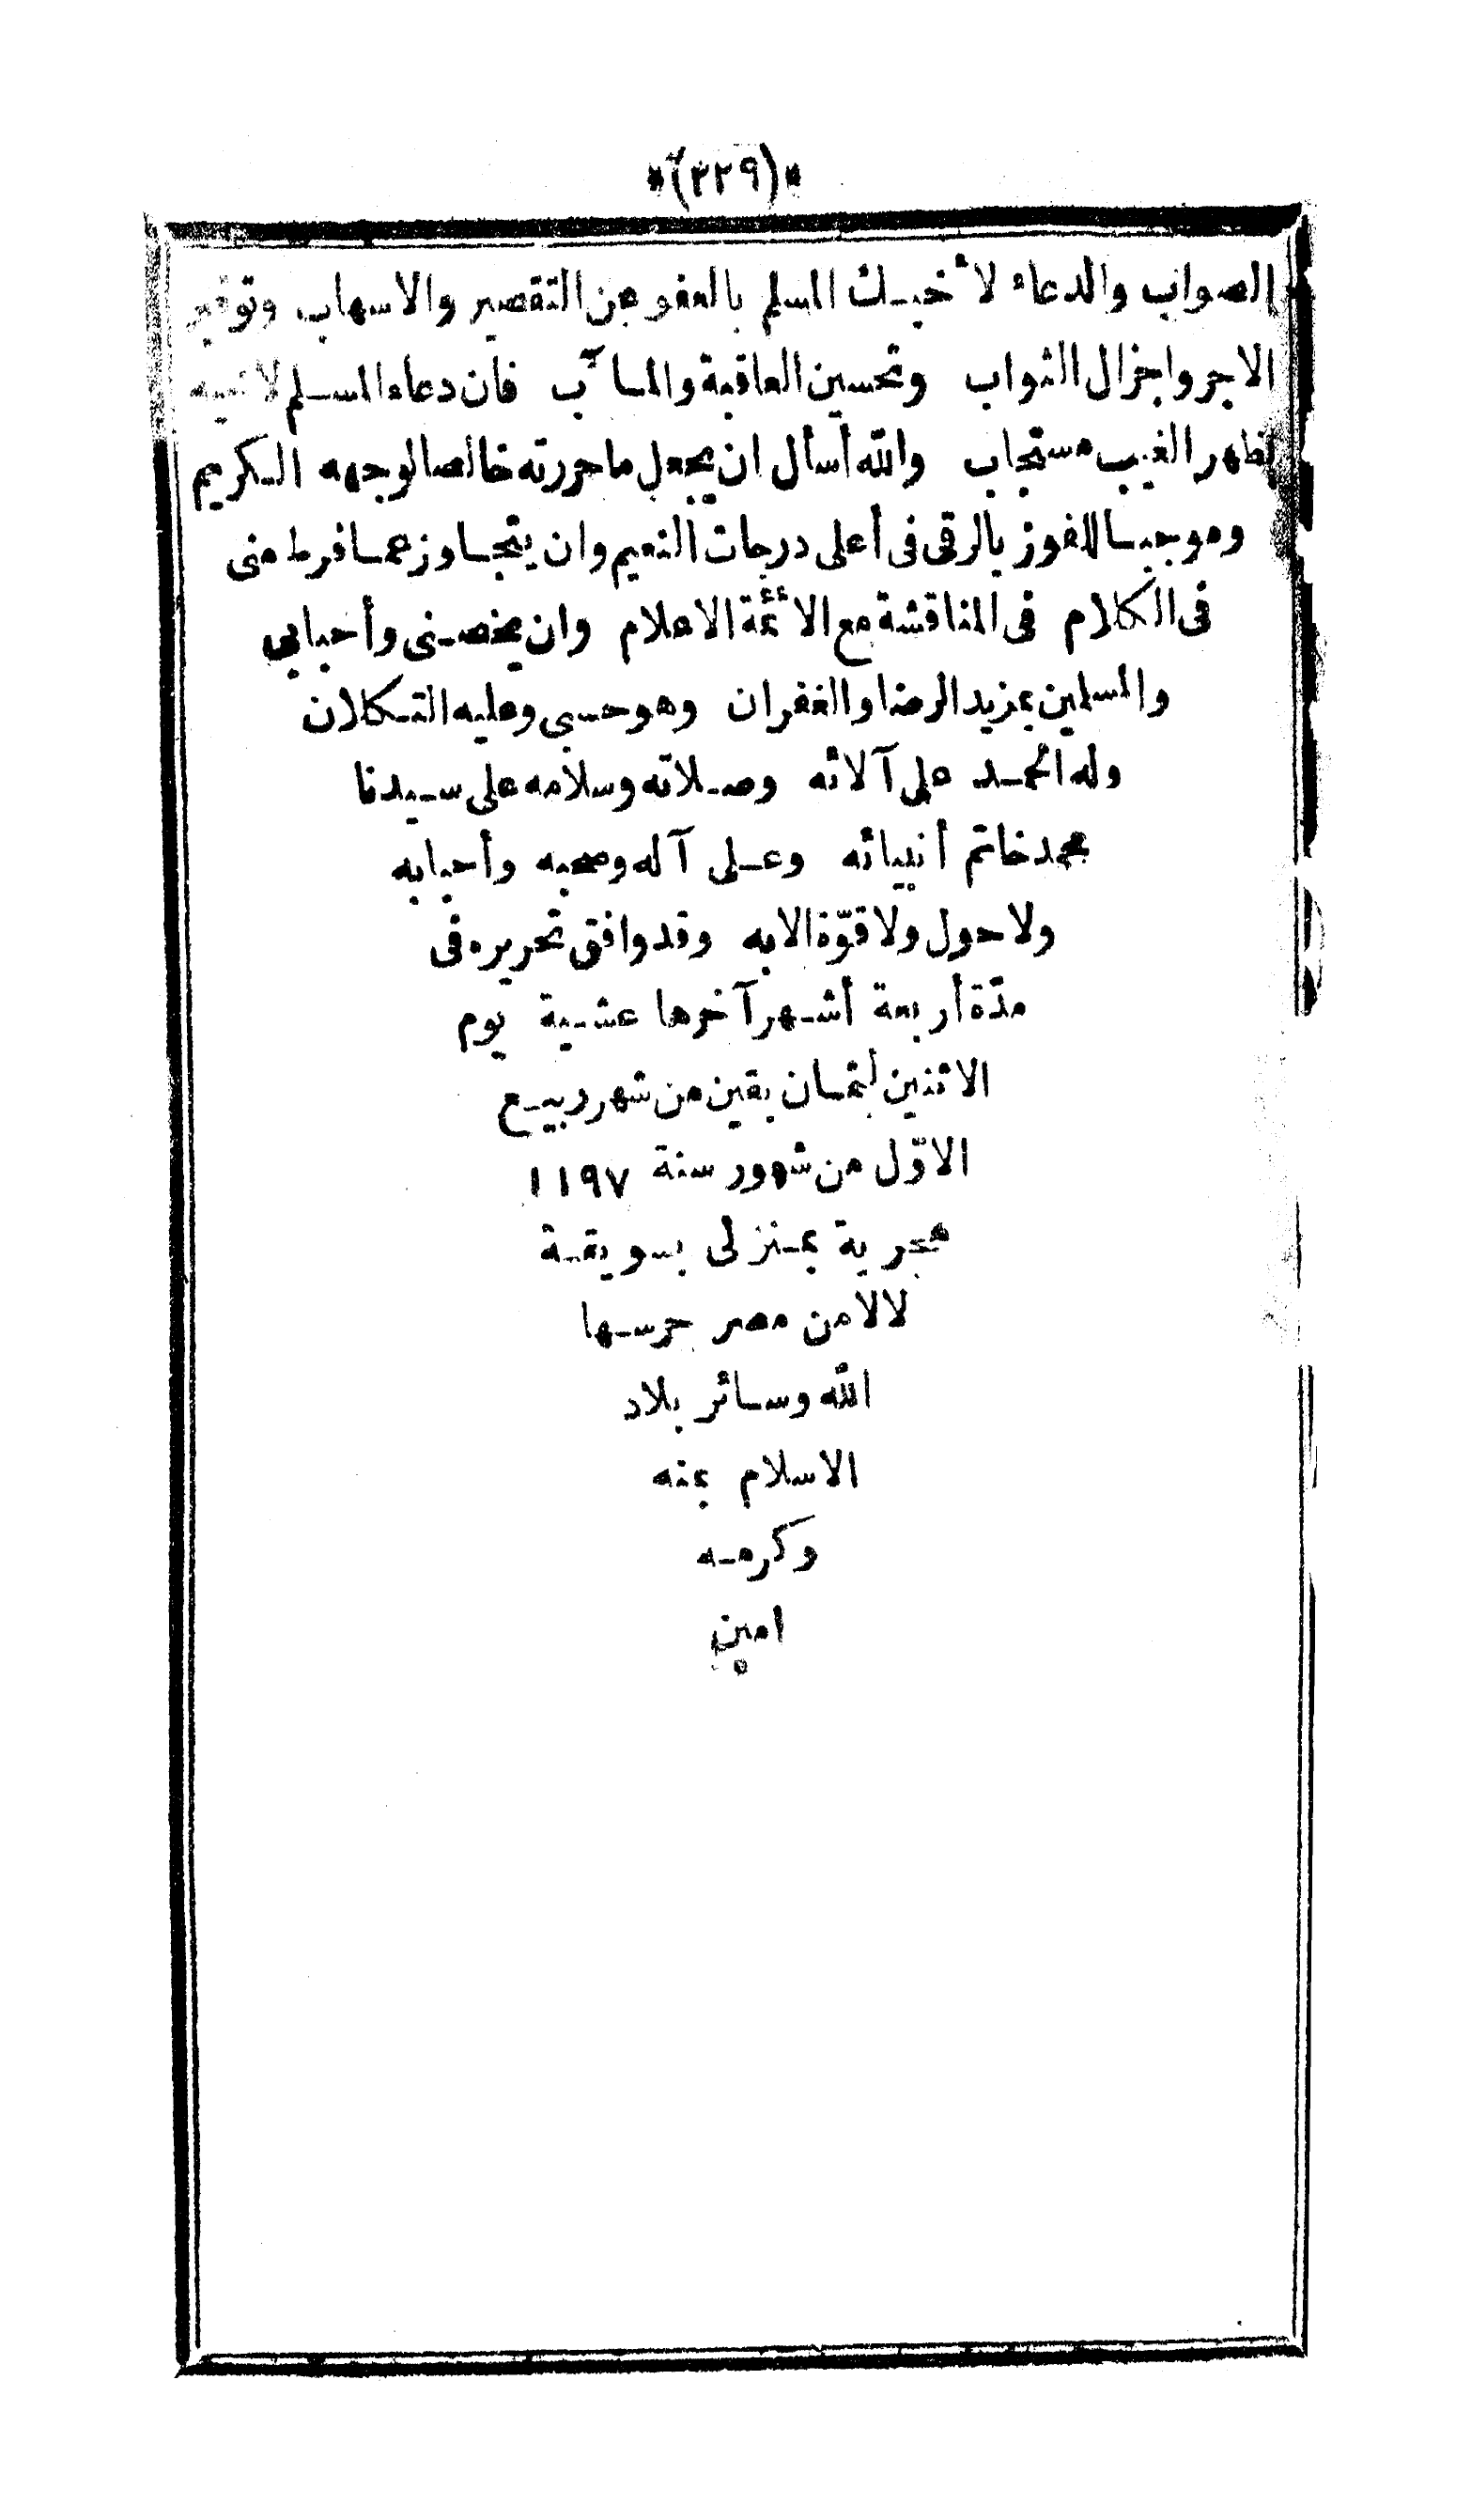 *(٢٢٩)*
الصواب والدعاء لأخيك المسلم بالعفو عن التقصير والاسهاب وتوفير
الاجر واجزال الثواب وتحسين العاقبة والمآب فان دعاء المسلم لاخيه
بظهر الغيب مستجاب والله أسأل ان يجعل ما حررته خالصا لوجهه الكريم
وموجبا للفوز بالرقى فى أعلى درجات النعيم وان يتجاوز عما فرط منى
فى الكلام فى المناقشة مع الأئمة الاعلام وان يخصنى وأحبابى
والمسلمين بمزيد الرضا والغفران وهو حسبى وعليه التكلان
وله الحمد على آلائه وصلاته وسلامه على سيدنا
محمد خاتم أنبيائه وعلى آله وصحبه وأحبابه
ولا حول ولا قوّة الا به وقد وافق تحريره فى
مدّة أربعة أشهر آخرها عشية يوم
الاثنين لثمان بقين من شهر ربيع
الاوّل من شهور سنة ١١٩٧
هجرية بمنزلى بسويقة
لالا من مصر حرسها
الله وسائر بلاد
الاسلام بمنه
وكرمه
امين